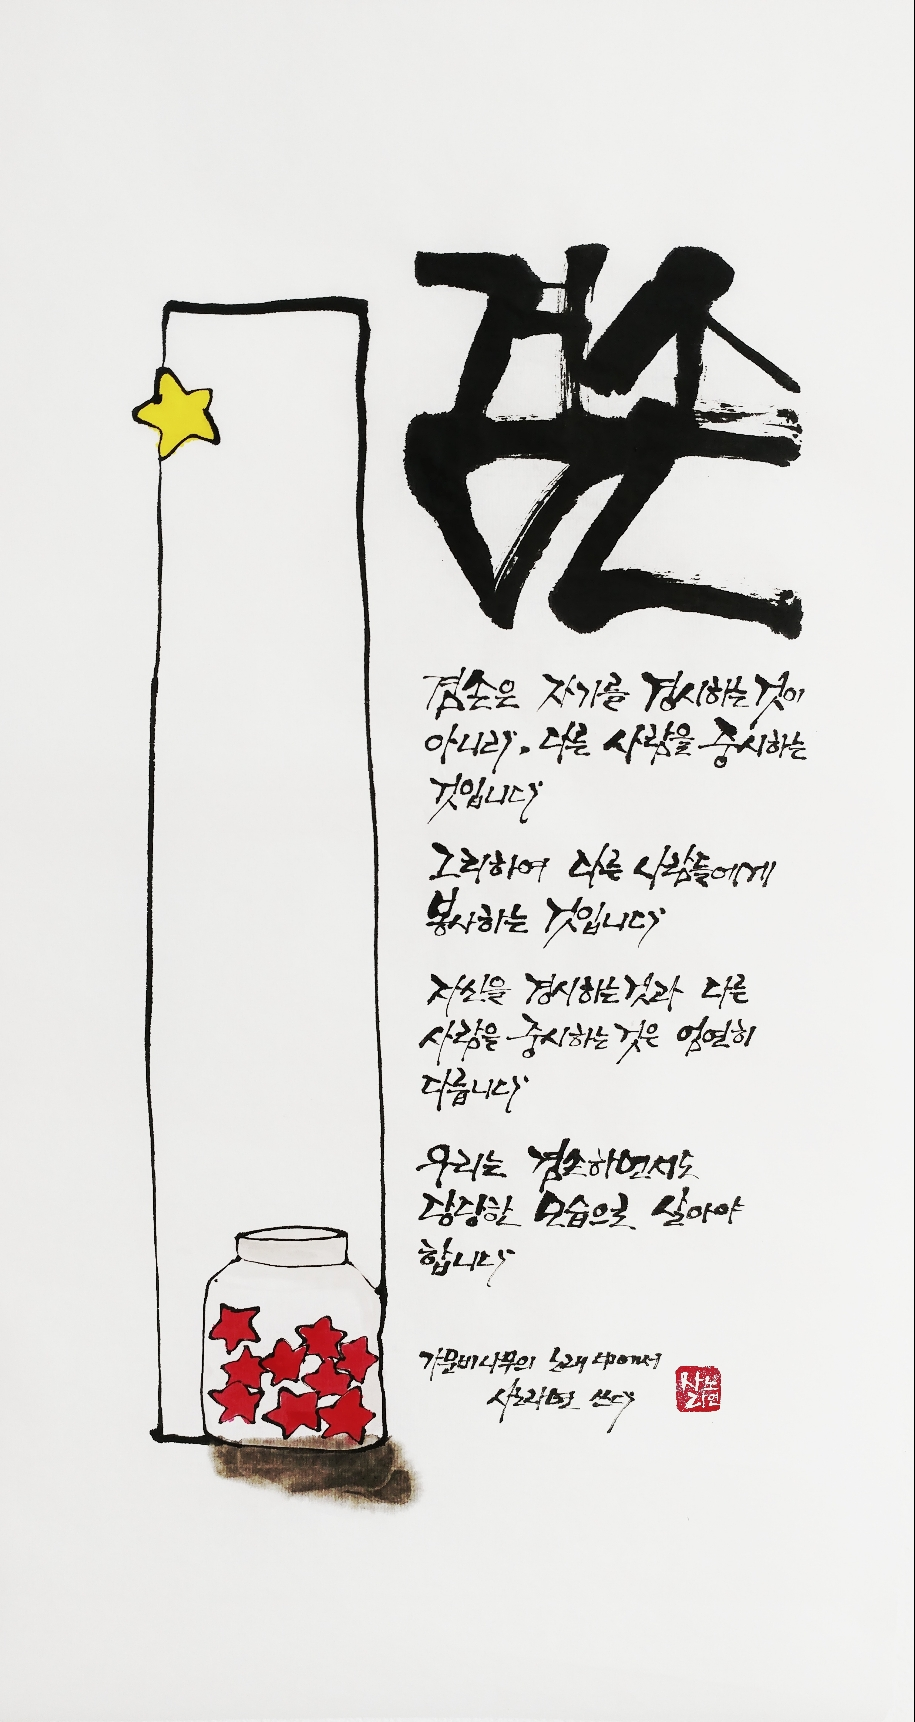 겸손
겸손은 자기를 경시하는것이
아니라, 다른 사람을 중시하는
것입니다
그리하여 다른 사람들에게
봉사하는 것입니다
자신을 경시하는것과 다른
사람을 중시하는것은 엄연히
다릅니다
우리는 겸손하면서도
당당한 모습으로 살아야
합니다
가문비나무의 노래 中에서
사노라면 쓰다
사노
라면